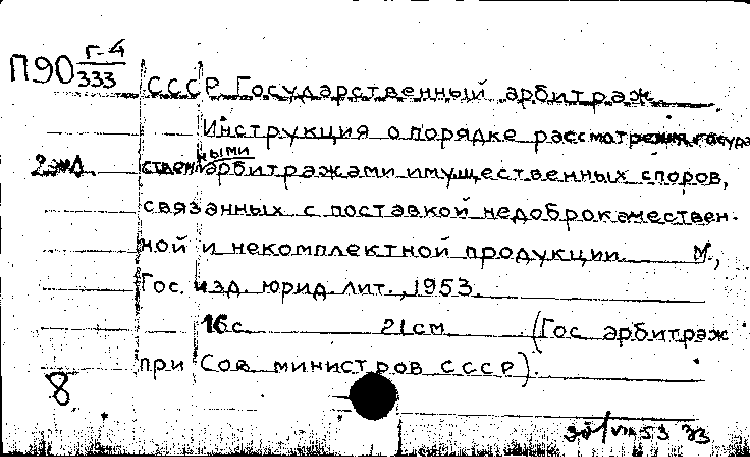 П90 Г-4
333
СССР Государственный арбитраж
Инструкция о порядке рассмотрения государ
2 экз. ственными арбитражами имущественных споров,
связанных с поставкой недоброкачествен-
ной и некомплектной продукции М.,
Гос. изд. юрид. лит., 1953.
16 с. 21 см (Гос арбитраж
при Сов. министров СССР).
8
53